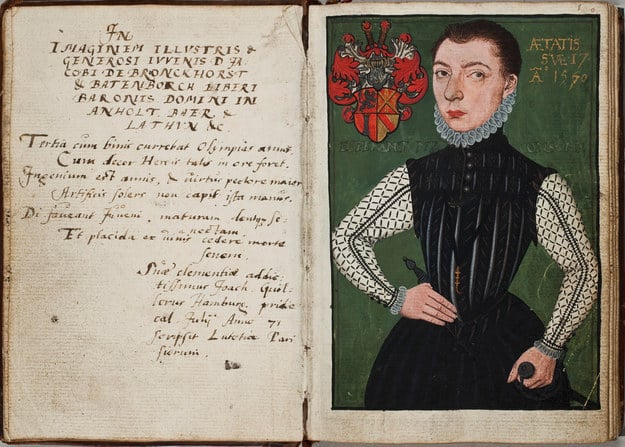 IN
IMAGINEM ILLUSTRIS &
GENEROSI IUVENIS D JA
COBI DE BRONCKHORST
& BATENBORCH LIBERI
BARONIS DOMINI IN
ANHOLT BAER &
LATHUN &c
Tertia cum binis curretat Olympias annis
Cum decor Herois talis in ore foret.
Ingenium est annis, & virtus pectore maior
Artificis solers non capit ista manus.
Di faveant iuveni, maturam
Et placida ex cedere morte
senem.
Suæ clementiæ addic-
tissimus Joach. Quil-
lerus Hamburg. pridie
cal. Julij Anno 71
scripsit Lutetiæ Pari
siorum.
ÆTATIS
SVÆ 17
Aº 1570